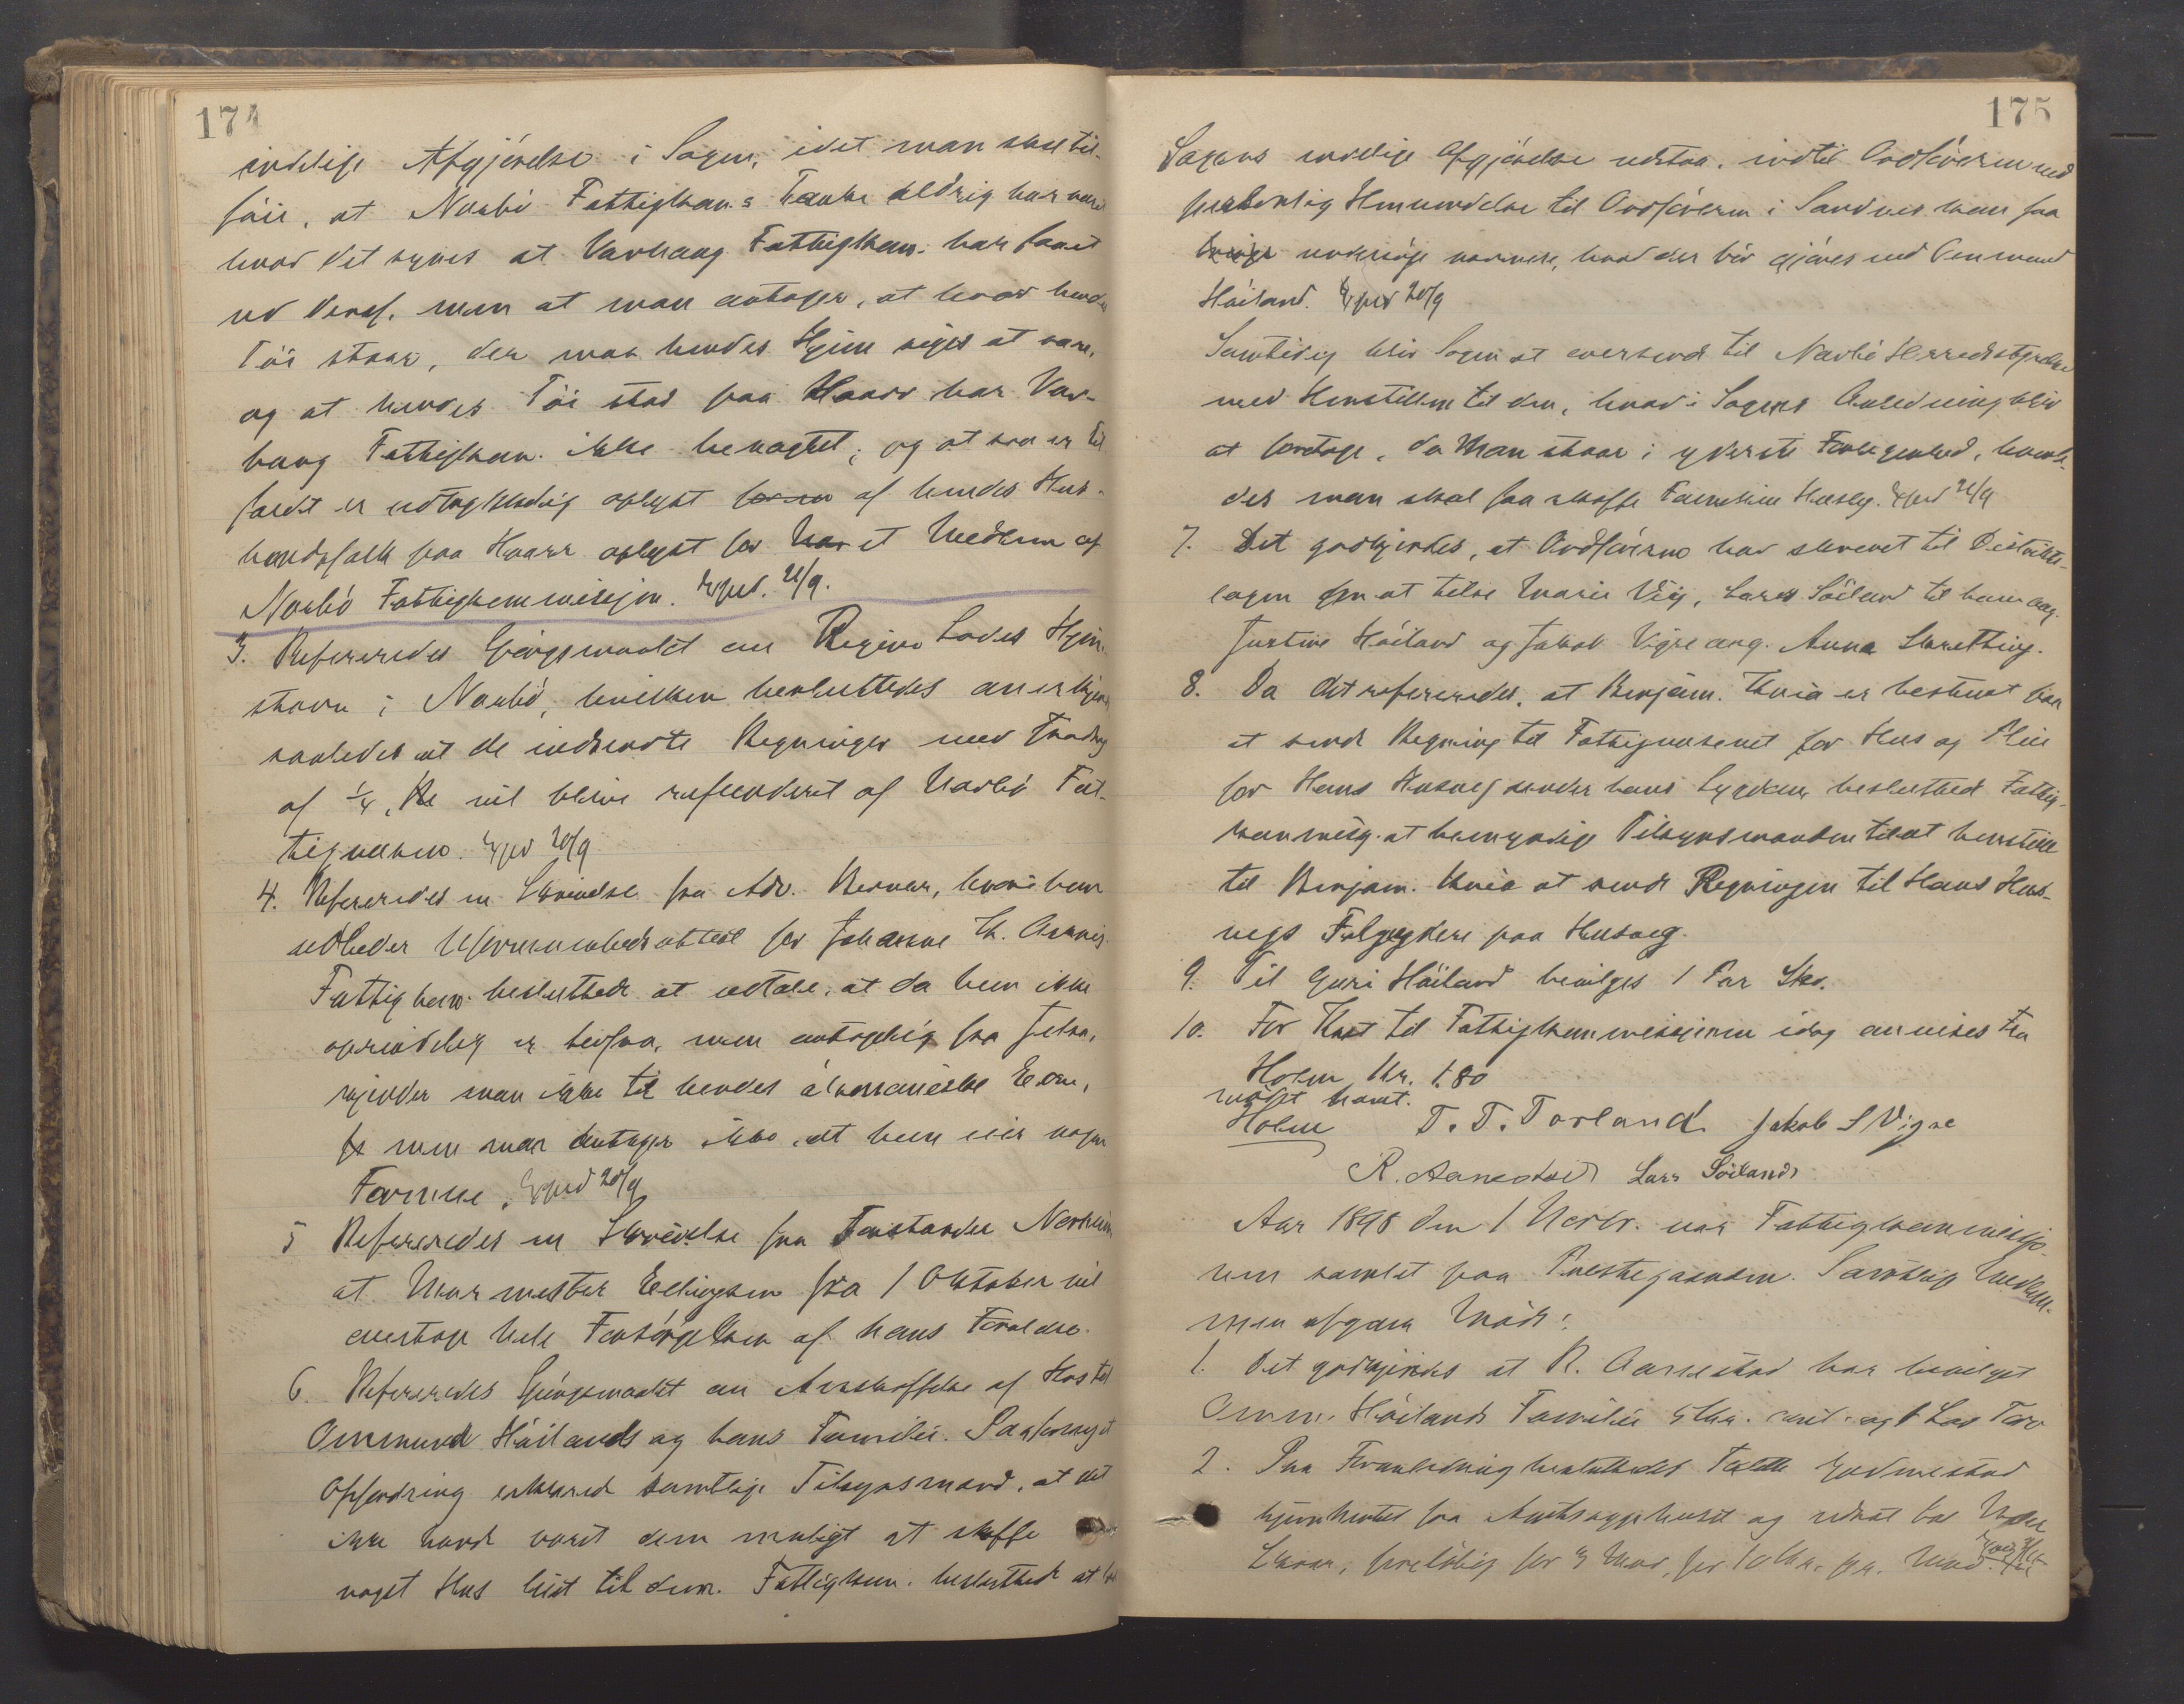 174
endelige Afgjørelse i Sagen, idet man skal til-
føie, at Nærbø Fattigkom.s Tanke aldrig har været
hvad det synes at Varhaug Fattigkom. har faaet
ud deraf, men at man antager, at hvor hendes
Tøi staar, der maa hendes Hjem siges at være,
og at hendes Tøi stod paa Haarr har Var-
haug Fattigkom. ikke benægtet; og at saa er Til-
faldet er udtrykkelig oplyst af hendes Hus-
bondsfolk paa Haarr oplyst for et Medlem af
Nærbø Fattigkommission. Exped. 21/9.
3. Refereredes Spørgsmaalet om Regine Lodes Hjem-
stavn i Nærbø, hvilken besluttedes anerkjendt
saaledes at de indsendte Regninger med Fradrag
af 1/4 vil blive refunderet af Nærbø Fat-
tigvæsen. Exped 20/9
4. Refereredes en Skrivelse fra Adv. Berner, hvori han
udbeder Uformuenhedsattest for Johanne
Fattigkom. besluttede at udtale, at da hun ikke
oprindelig er herfra, men antagelig fra Jelsa,
kjender man ikke til hendes økonomiske Evne,
men man antager ikke, at hun eier nogen
Formue. Exped 20/9
5 Refereredes en Skrivelse fra Forstander Nordheim
at Murmester Ellingsen fra 1 Oktober vil
overtage hele Forsørgelsen af hans Forældre.
6. Refereredes Spørgsmaalet om Anskaffelse af Hus til
Ommund Høilands og hans Familie. Paa
Opfordring erklæred samtlige Tilsynsmænd, at det
ikke havde været dem muligt at skaffe
noget Hus leiet til dem. Fattigkom. besluttede at lade
175
Sagens endelige Afgjørelse udstaa, indtil Ordføreren ved
personlig Henvendelse til Ordføreren i Sandnes kan faa
undersøge nærmere, hvad der bør gjøres med Ommund
Høiland. Exped 20/9
Samtidig blir Sagen at oversende til Nærbø Herredsstyrelse
med Henstillen til den, hvad i Sagens Anledning blir
at foretage, da Man staar i yderste Forlegenhed, hvorle-
des man skal faa skaffe Familien Husly. Exped 21/9
7. Det godkjendtes, at Ordføreren har skrevet til Distrikts-
lægen om at tilse Marie Vig, Lars Søiland til ham ang.
Justine Høiland og Jakob Vigre ang. Anna Skretting.
8. Da det refereredes, at Benjam. Kvia er bestemt paa
at sende Regning til Fattigvæsenet for Hus og Pleie
for Hans Husveg under hans Sygdom, besluttede Fattig-
kommisj. at bemyndige Tilsynsmanden til at henstille
til Benjam. Kvia at sende Regningen til Hans Hus-
vegs Følgeydere paa Husveg.
9. Til Guri Høiland bevilges 1 Par Sko.
10. For Kost til Fattigkommissionen idag anvises Fru
Holm Kr. 1.80
mødt komt.
Holm T. T. Torland Jakob S Vigre
R. Aanestad Lars Søiland
Aar 1898 den 1 Novbr. var Fattigkommissio-
nen samlet paa Prestegaarden. Samtlige Medlem-
mer afgaven Møde:
1. Det godkjendes at R. Aanestad har bevilget
Omm. Høilands Familie 5 Kr. og 1 Las Torv
2. Paa Foranledning besluttedes Tolette Godmestad
hjemhentet fra Amtssygehuset og udsat hos
foreløbig for 3 Mdr, for 10 Kr. pr. Maaned.